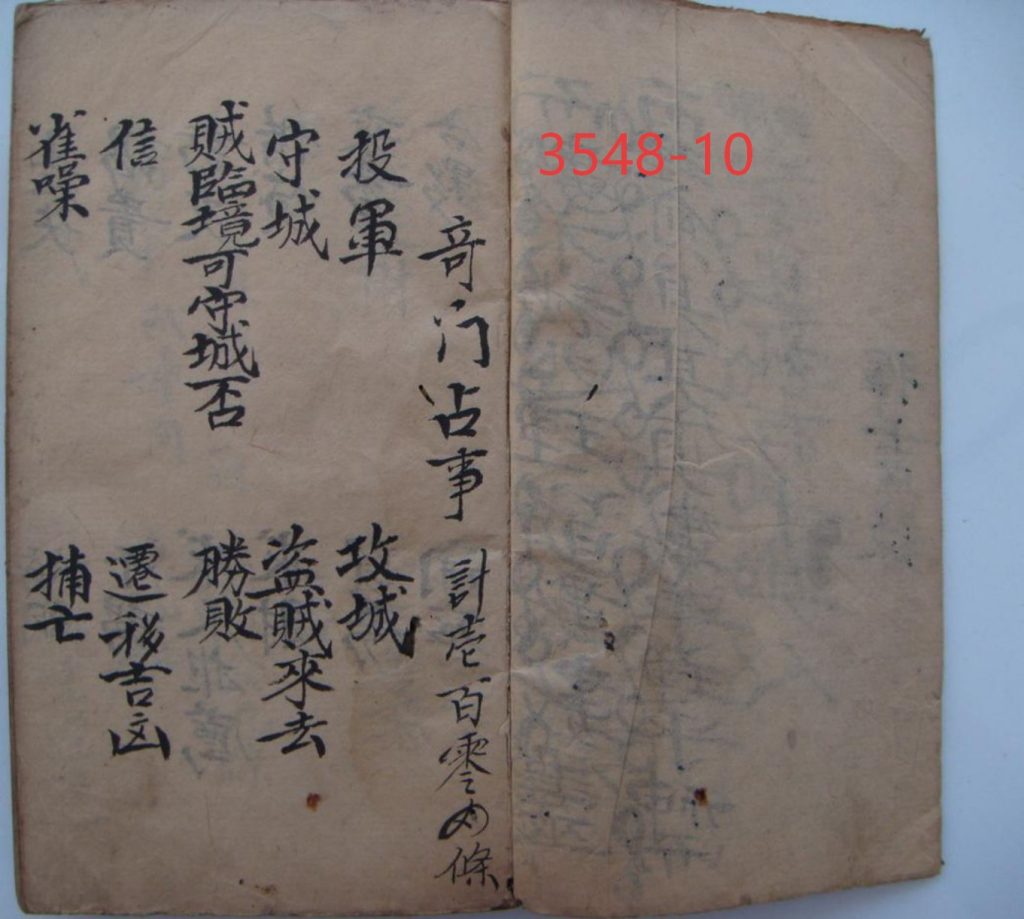 3548-10
奇门占事 計壱百零四條
投軍 攻城
守城 盗賊來去
賊臨境可守城否 勝敗
信 遷移吉凶
雀噪 捕亡